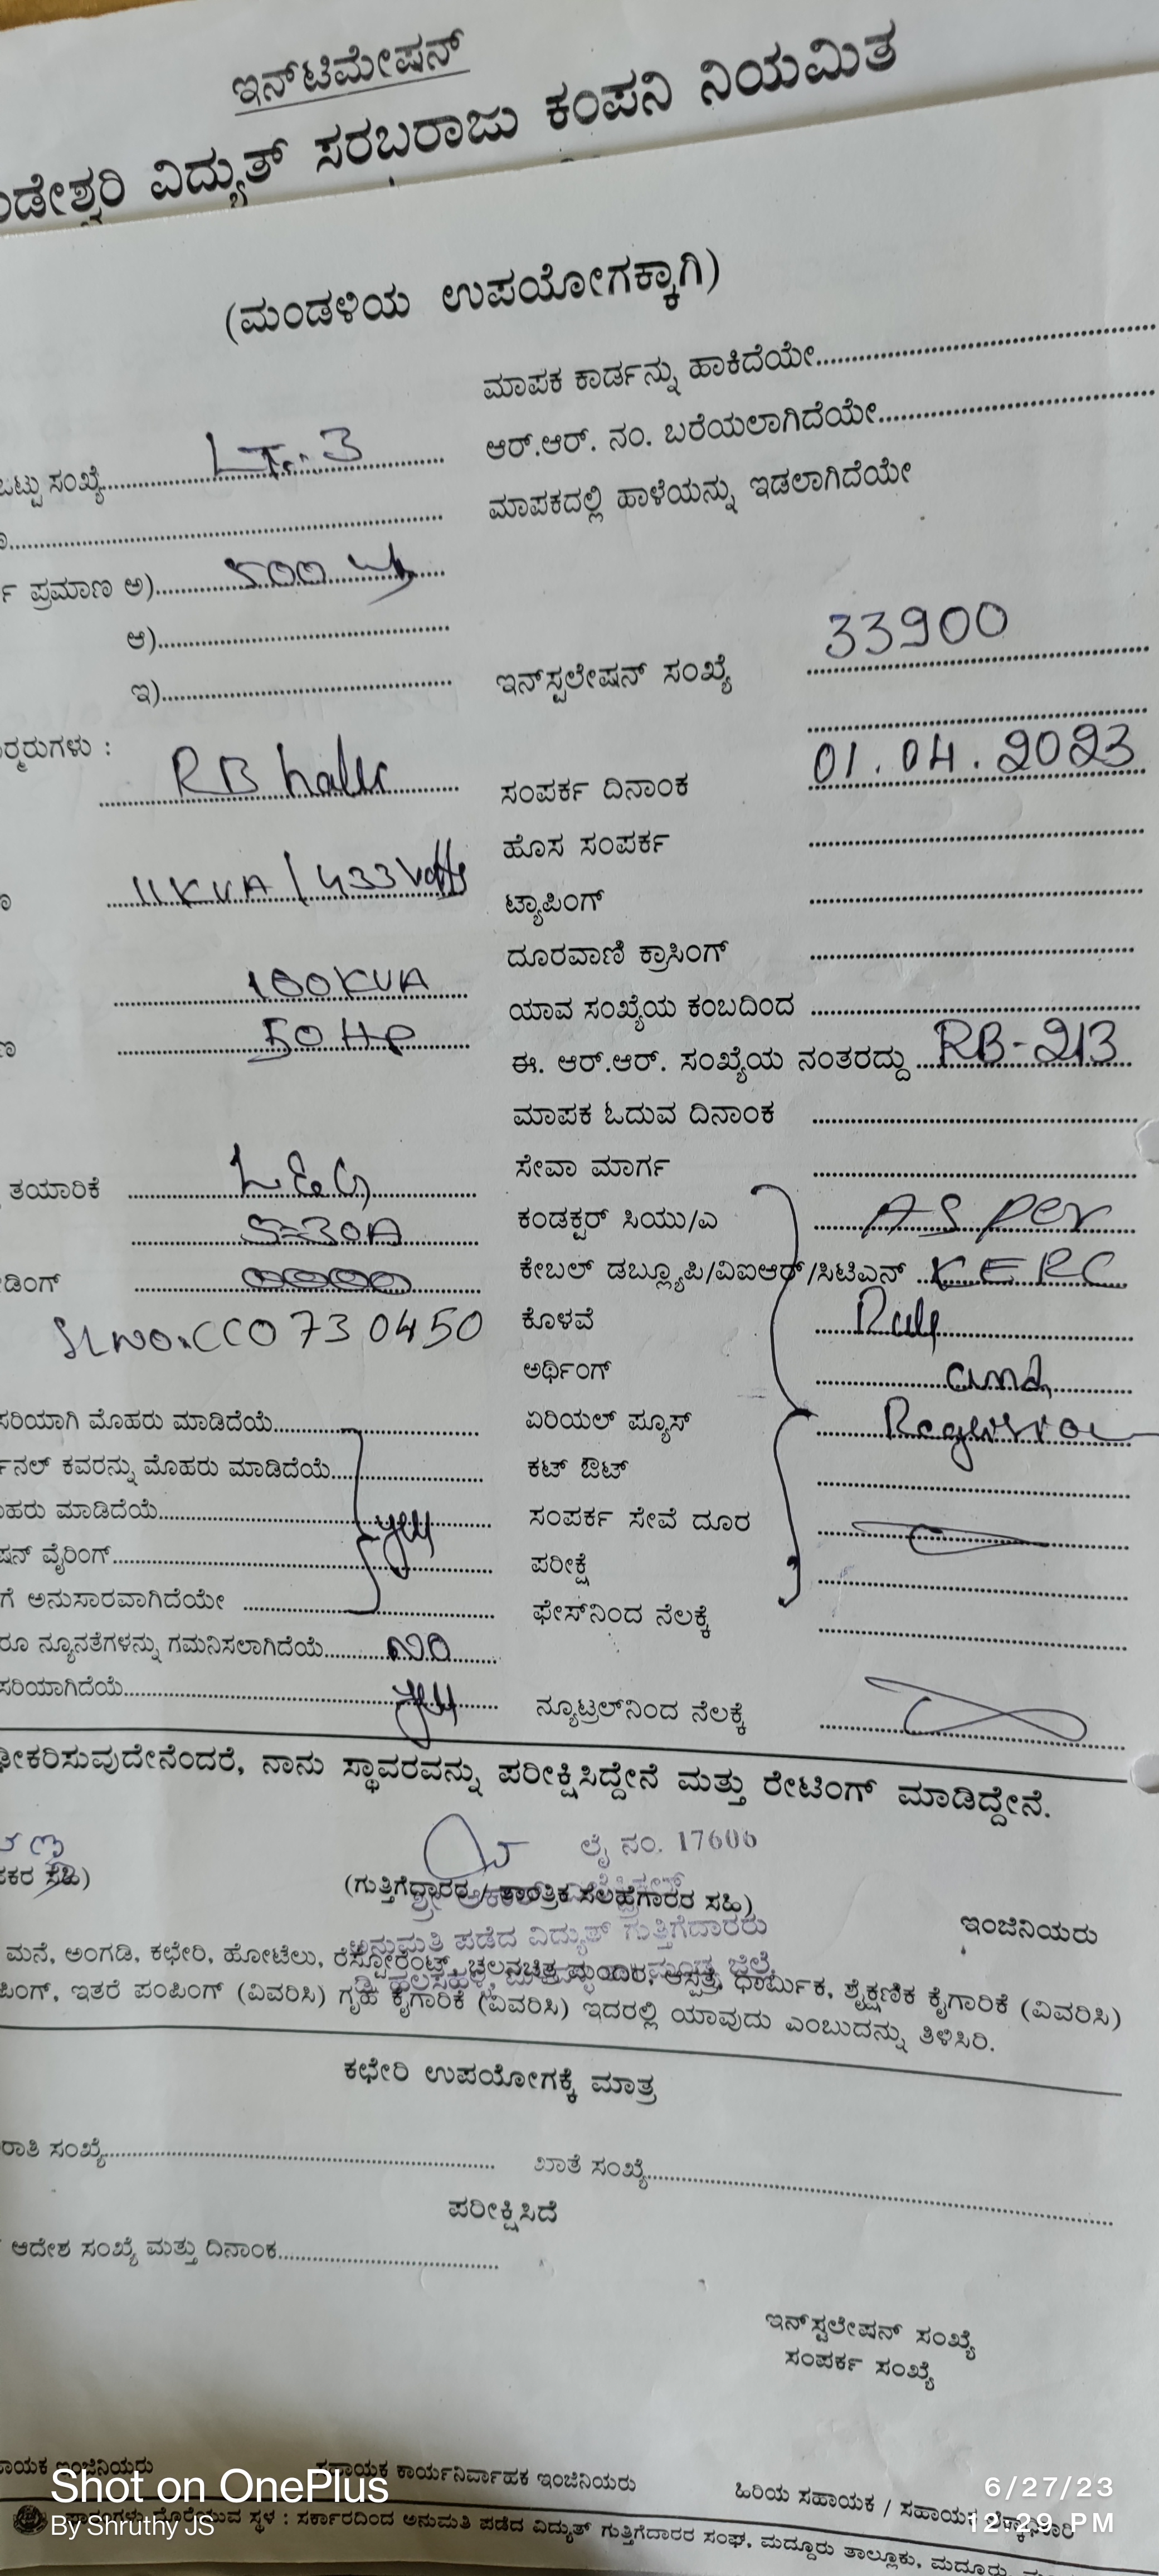 ಇನ್‌ಟಿಮೇಷನ್
ಂಡೇಶ್ವರಿ ವಿದ್ಯುತ್ ಸರಬರಾಜು ಕಂಪನಿ ನಿಯಮಿತ
(ಮಂಡಳಿಯ ಉಪಯೋಗಕ್ಕಾಗಿ)
ಮಾಪಕ ಕಾರ್ಡನ್ನು ಹಾಕಿದೆಯೇ
ಒಟ್ಟು ಸಂಖ್ಯೆ LT-3 ಆರ್.ಆರ್. ನಂ. ಬರೆಯಲಾಗಿದೆಯೇ
ಮಾಪಕದಲ್ಲಿ ಹಾಳೆಯನ್ನು ಇಡಲಾಗಿದೆಯೇ
ಪ್ರಮಾಣ ಅ) 500
ಆ)
ಇ) ಇನ್‌ಸ್ಟಲೇಷನ್ ಸಂಖ್ಯೆ 33900
ರ್ಮರುಗಳು :
RB halli ಸಂಪರ್ಕ ದಿನಾಂಕ 01.04.2023
ಹೊಸ ಸಂಪರ್ಕ
11KVA / 433 Volts ಟ್ಯಾಪಿಂಗ್
ದೂರವಾಣಿ ಕ್ರಾಸಿಂಗ್
100KVA ಯಾವ ಸಂಖ್ಯೆಯ ಕಂಬದಿಂದ
50 HP ಈ. ಆರ್.ಆರ್. ಸಂಖ್ಯೆಯ ನಂತರದ್ದು RB-213
ಮಾಪಕ ಓದುವ ದಿನಾಂಕ
ತಯಾರಿಕೆ L&G ಸೇವಾ ಮಾರ್ಗ
5-30A ಕಂಡಕ್ಟರ್ ಸಿಯು/ಎ AS Per
ಡಿಂಗ್ ಕೇಬಲ್ ಡಬ್ಲ್ಯೂಪಿ/ವಿಐಆರ್/ಸಿಟಿಎನ್ KERC
SLNO.CC0730450 ಕೊಳವೆ Rule
ಅರ್ಥಿಂಗ್ and
ಸರಿಯಾಗಿ ಮೊಹರು ಮಾಡಿದೆಯೆ ಏರಿಯಲ್ ಪ್ಯೂಸ್
ನಲ್ ಕವರನ್ನು ಮೊಹರು ಮಾಡಿದೆಯೆ ಕಟ್ ಔಟ್
ಹರು ಮಾಡಿದೆಯೆ yes ಸಂಪರ್ಕ ಸೇವೆ ದೂರ
ಷನ್ ವೈರಿಂಗ್ ಪರೀಕ್ಷೆ
ಗೆ ಅನುಸಾರವಾಗಿದೆಯೇ ಫೇಸ್‌ನಿಂದ ನೆಲಕ್ಕೆ
ರೂ ನ್ಯೂನತೆಗಳನ್ನು ಗಮನಿಸಲಾಗಿದೆಯೆ NO
ಸರಿಯಾಗಿದೆಯೆ yes ನ್ಯೂಟ್ರಲ್‌ನಿಂದ ನೆಲಕ್ಕೆ
ೀಕರಿಸುವುದೇನೆಂದರೆ, ನಾನು ಸ್ಥಾವರವನ್ನು ಪರೀಕ್ಷಿಸಿದ್ದೇನೆ ಮತ್ತು ರೇಟಿಂಗ್ ಮಾಡಿದ್ದೇನೆ.
ಲೈ ನಂ. 17606
ಕರ ಸಹಿ) (ಗುತ್ತಿಗೆದ್ದಾರರ / ತಾಂತ್ರಿಕ ಸಲಹೆಗಾರರ ಸಹಿ)
ಅನುಮತಿ ಪಡೆದ ವಿದ್ಯುತ್ ಗುತ್ತಿಗೆದಾರರು ಇಂಜಿನಿಯರು
ಮನೆ, ಅಂಗಡಿ, ಕಛೇರಿ, ಹೋಟೆಲು, ರೆಸ್ಟೋರೆಂಟ್, ಚಲನಚಿತ್ರ ಮಂದಿರ, ಆಸ್ಪತ್ರೆ, ಧಾರ್ಮಿಕ, ಶೈಕ್ಷಣಿಕ ಕೈಗಾರಿಕೆ (ವಿವರಿಸಿ)
ಪಿಂಗ್, ಇತರೆ ಪಂಪಿಂಗ್ (ವಿವರಿಸಿ) ಗೃಹ ಕೈಗಾರಿಕೆ (ವಿವರಿಸಿ) ಇದರಲ್ಲಿ ಯಾವುದು ಎಂಬುದನ್ನು ತಿಳಿಸಿರಿ.
ಕಛೇರಿ ಉಪಯೋಗಕ್ಕೆ ಮಾತ್ರ
ರಾತಿ ಸಂಖ್ಯೆ ಖಾತೆ ಸಂಖ್ಯೆ
ಪರೀಕ್ಷಿಸಿದೆ
ಆದೇಶ ಸಂಖ್ಯೆ ಮತ್ತು ದಿನಾಂಕ
ಇನ್‌ಸ್ಟಲೇಷನ್ ಸಂಖ್ಯೆ
ಸಂಪರ್ಕ ಸಂಖ್ಯೆ
ಾಯಕ ಇಂಜಿನಿಯರು ಸಹಾಯಕ ಕಾರ್ಯನಿರ್ವಾಹಕ ಇಂಜಿನಿಯರು ಹಿರಿಯ ಸಹಾಯಕ / ಸಹಾಯಕ
ದೊರೆಯುವ ಸ್ಥಳ : ಸರ್ಕಾರದಿಂದ ಅನುಮತಿ ಪಡೆದ ವಿದ್ಯುತ್ ಗುತ್ತಿಗೆದಾರರ ಸಂಘ, ಮದ್ದೂರು ತಾಲ್ಲೂಕು, ಮದೂರು,
Shot on OnePlus
By Shruthy JS
6/27/23
12:29 PM